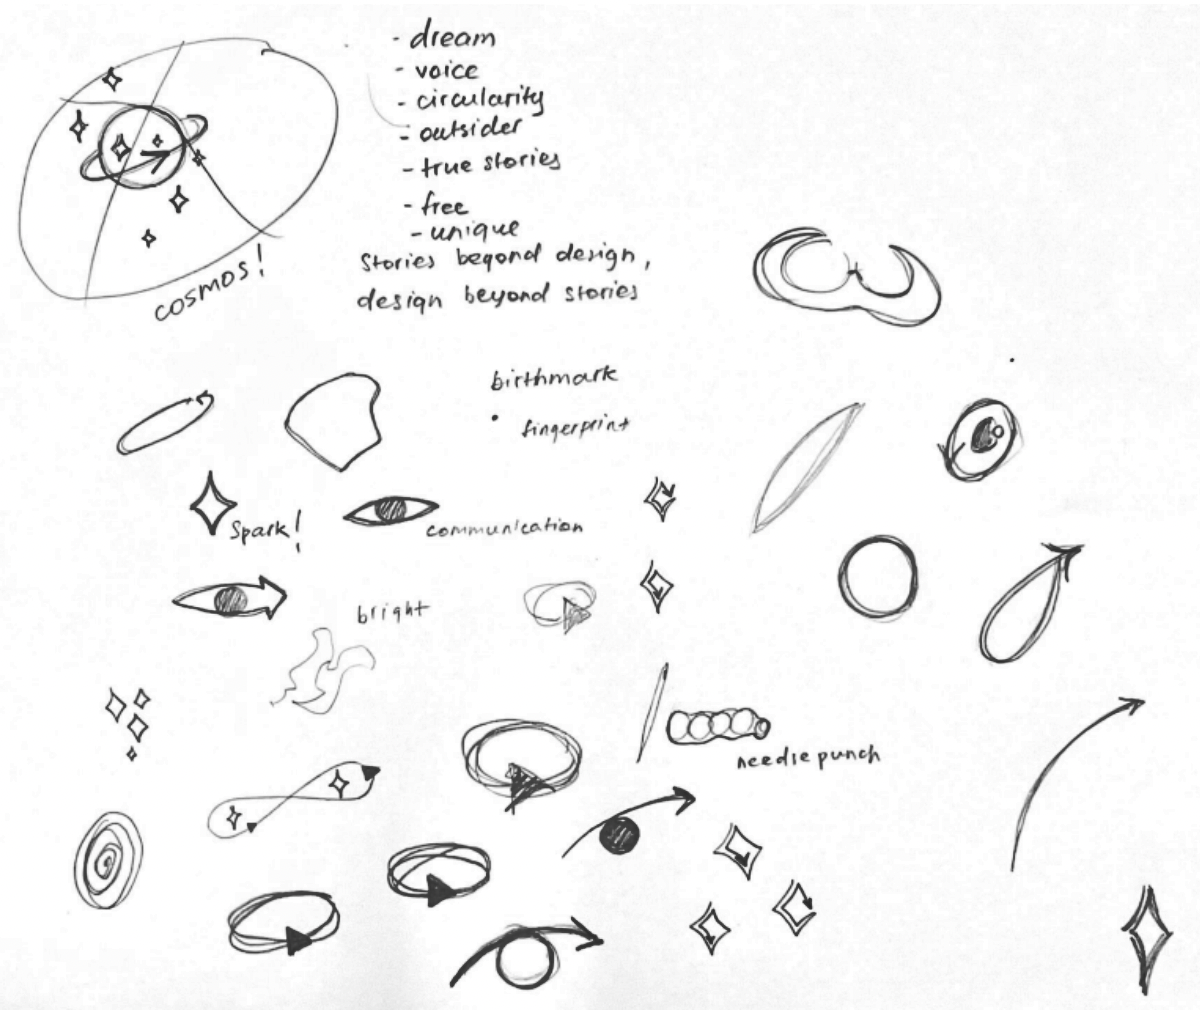 - dream
- voice
- circularity
- outsider
- true stories
- free
- unique
stories beyond design,
design beyond stories
cosmos!
birthmark
fingerprint
Spark!
communication
bright
needle punch